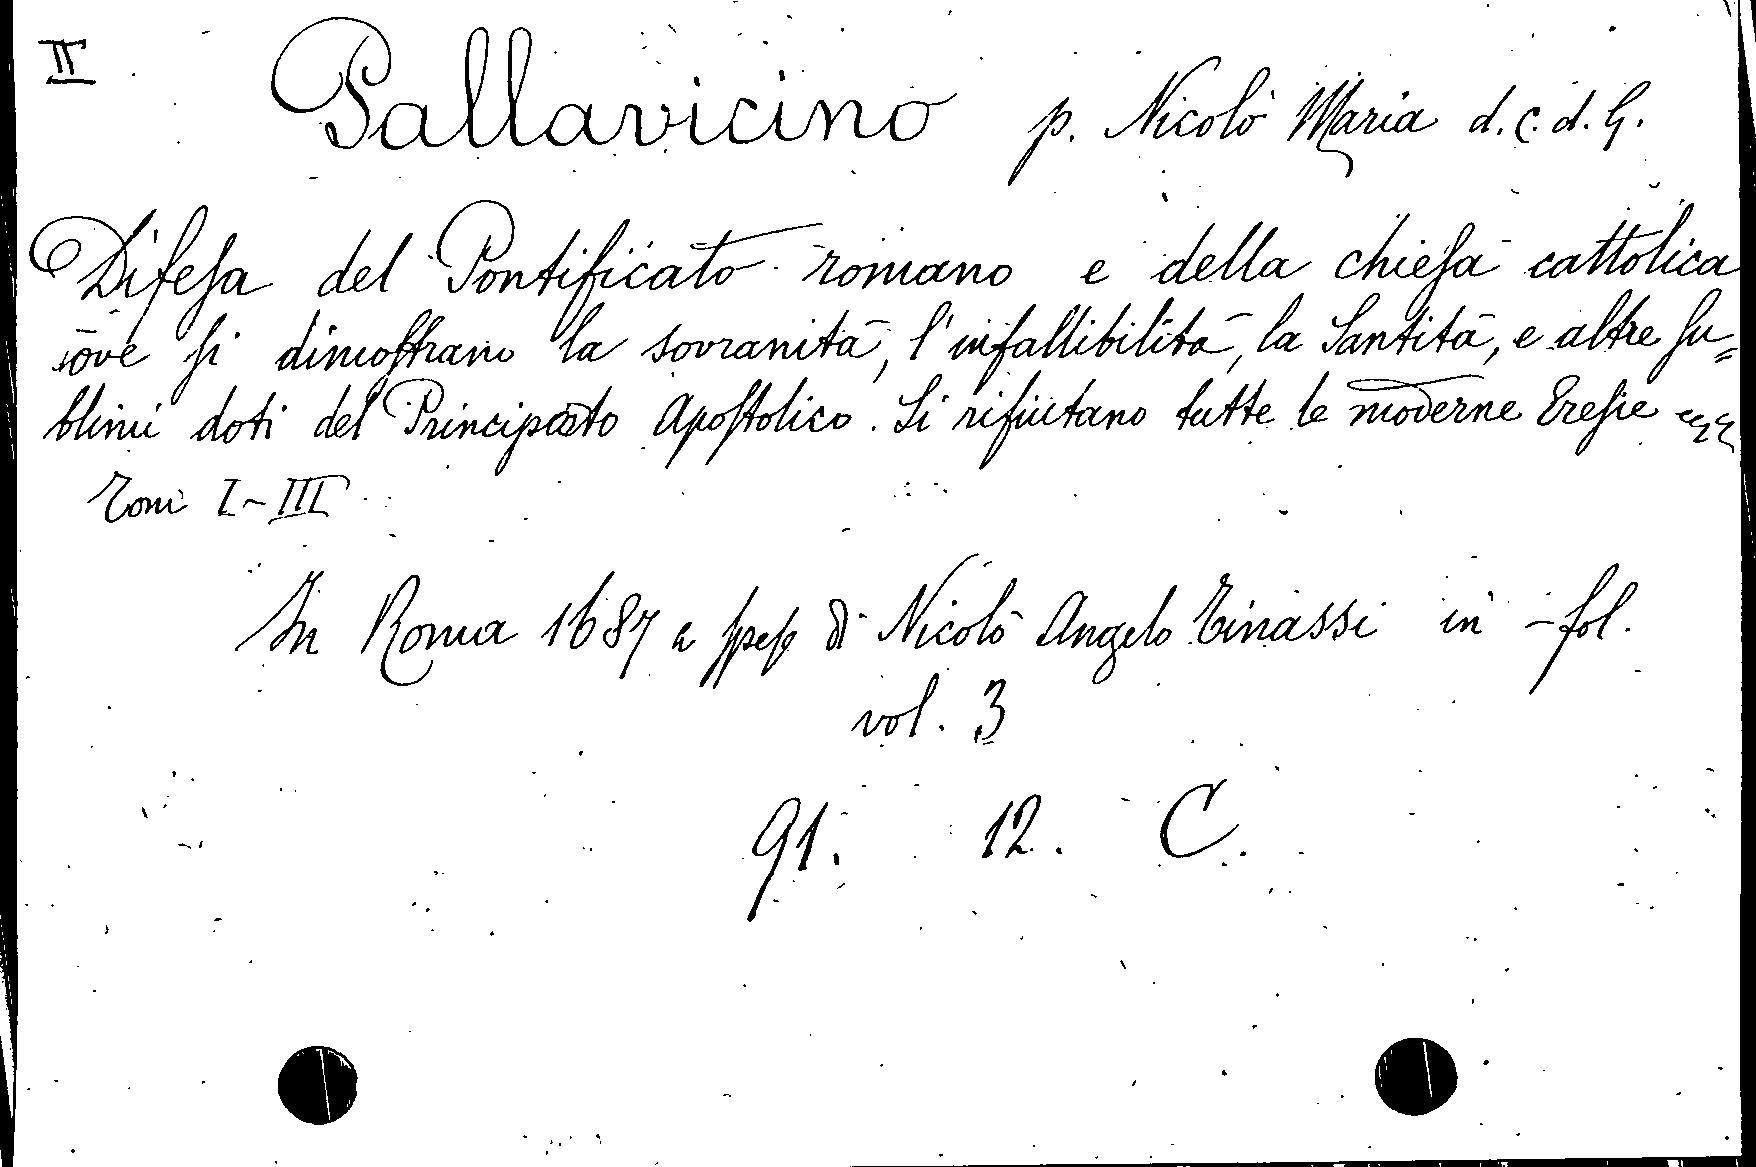 II
Pallavicino p. Nicolò Maria d. C. d. G.
Difeſa del Pontificato romano e della chieſa cattolica
ove ſi dimoſtrano la sovranità, l'infallibilità, la Santità, e altre ſu=
blimi doti del Principato Apoſtolico. Si rifiutano tutte le moderne Ereſie
Tomi I-III
In Roma 1687 a ſpeſe di Nicolò Angelo Tinassi in-fol.
vol. 3
91. 12. C.